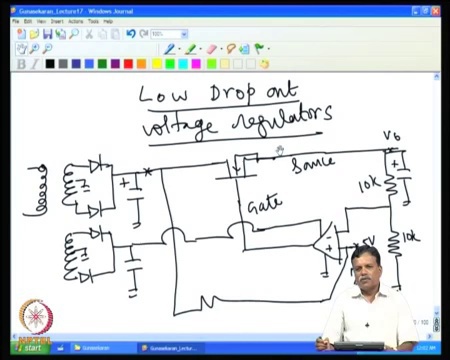 Gunasekaran_Lecture17 - Windows Journal
File Edit View Insert Actions Tools Help
100%
B I
Low Drop out
voltage regulators
Source
Vo
10k
Gate
5V
10k
NPTEL
start
Gunasekaran
Gunasekaran_Lectu...